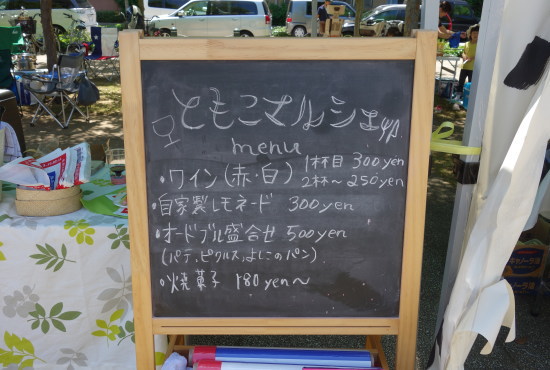 ともこマルシェ
menu
・ワイン(赤・白) 1杯目 300yen
2杯〜250yen
・自家製レモネード 300yen
・オードブル盛合せ 500yen
(パテ、ピクルス、よしこのパン)
・焼菓子 180yen〜